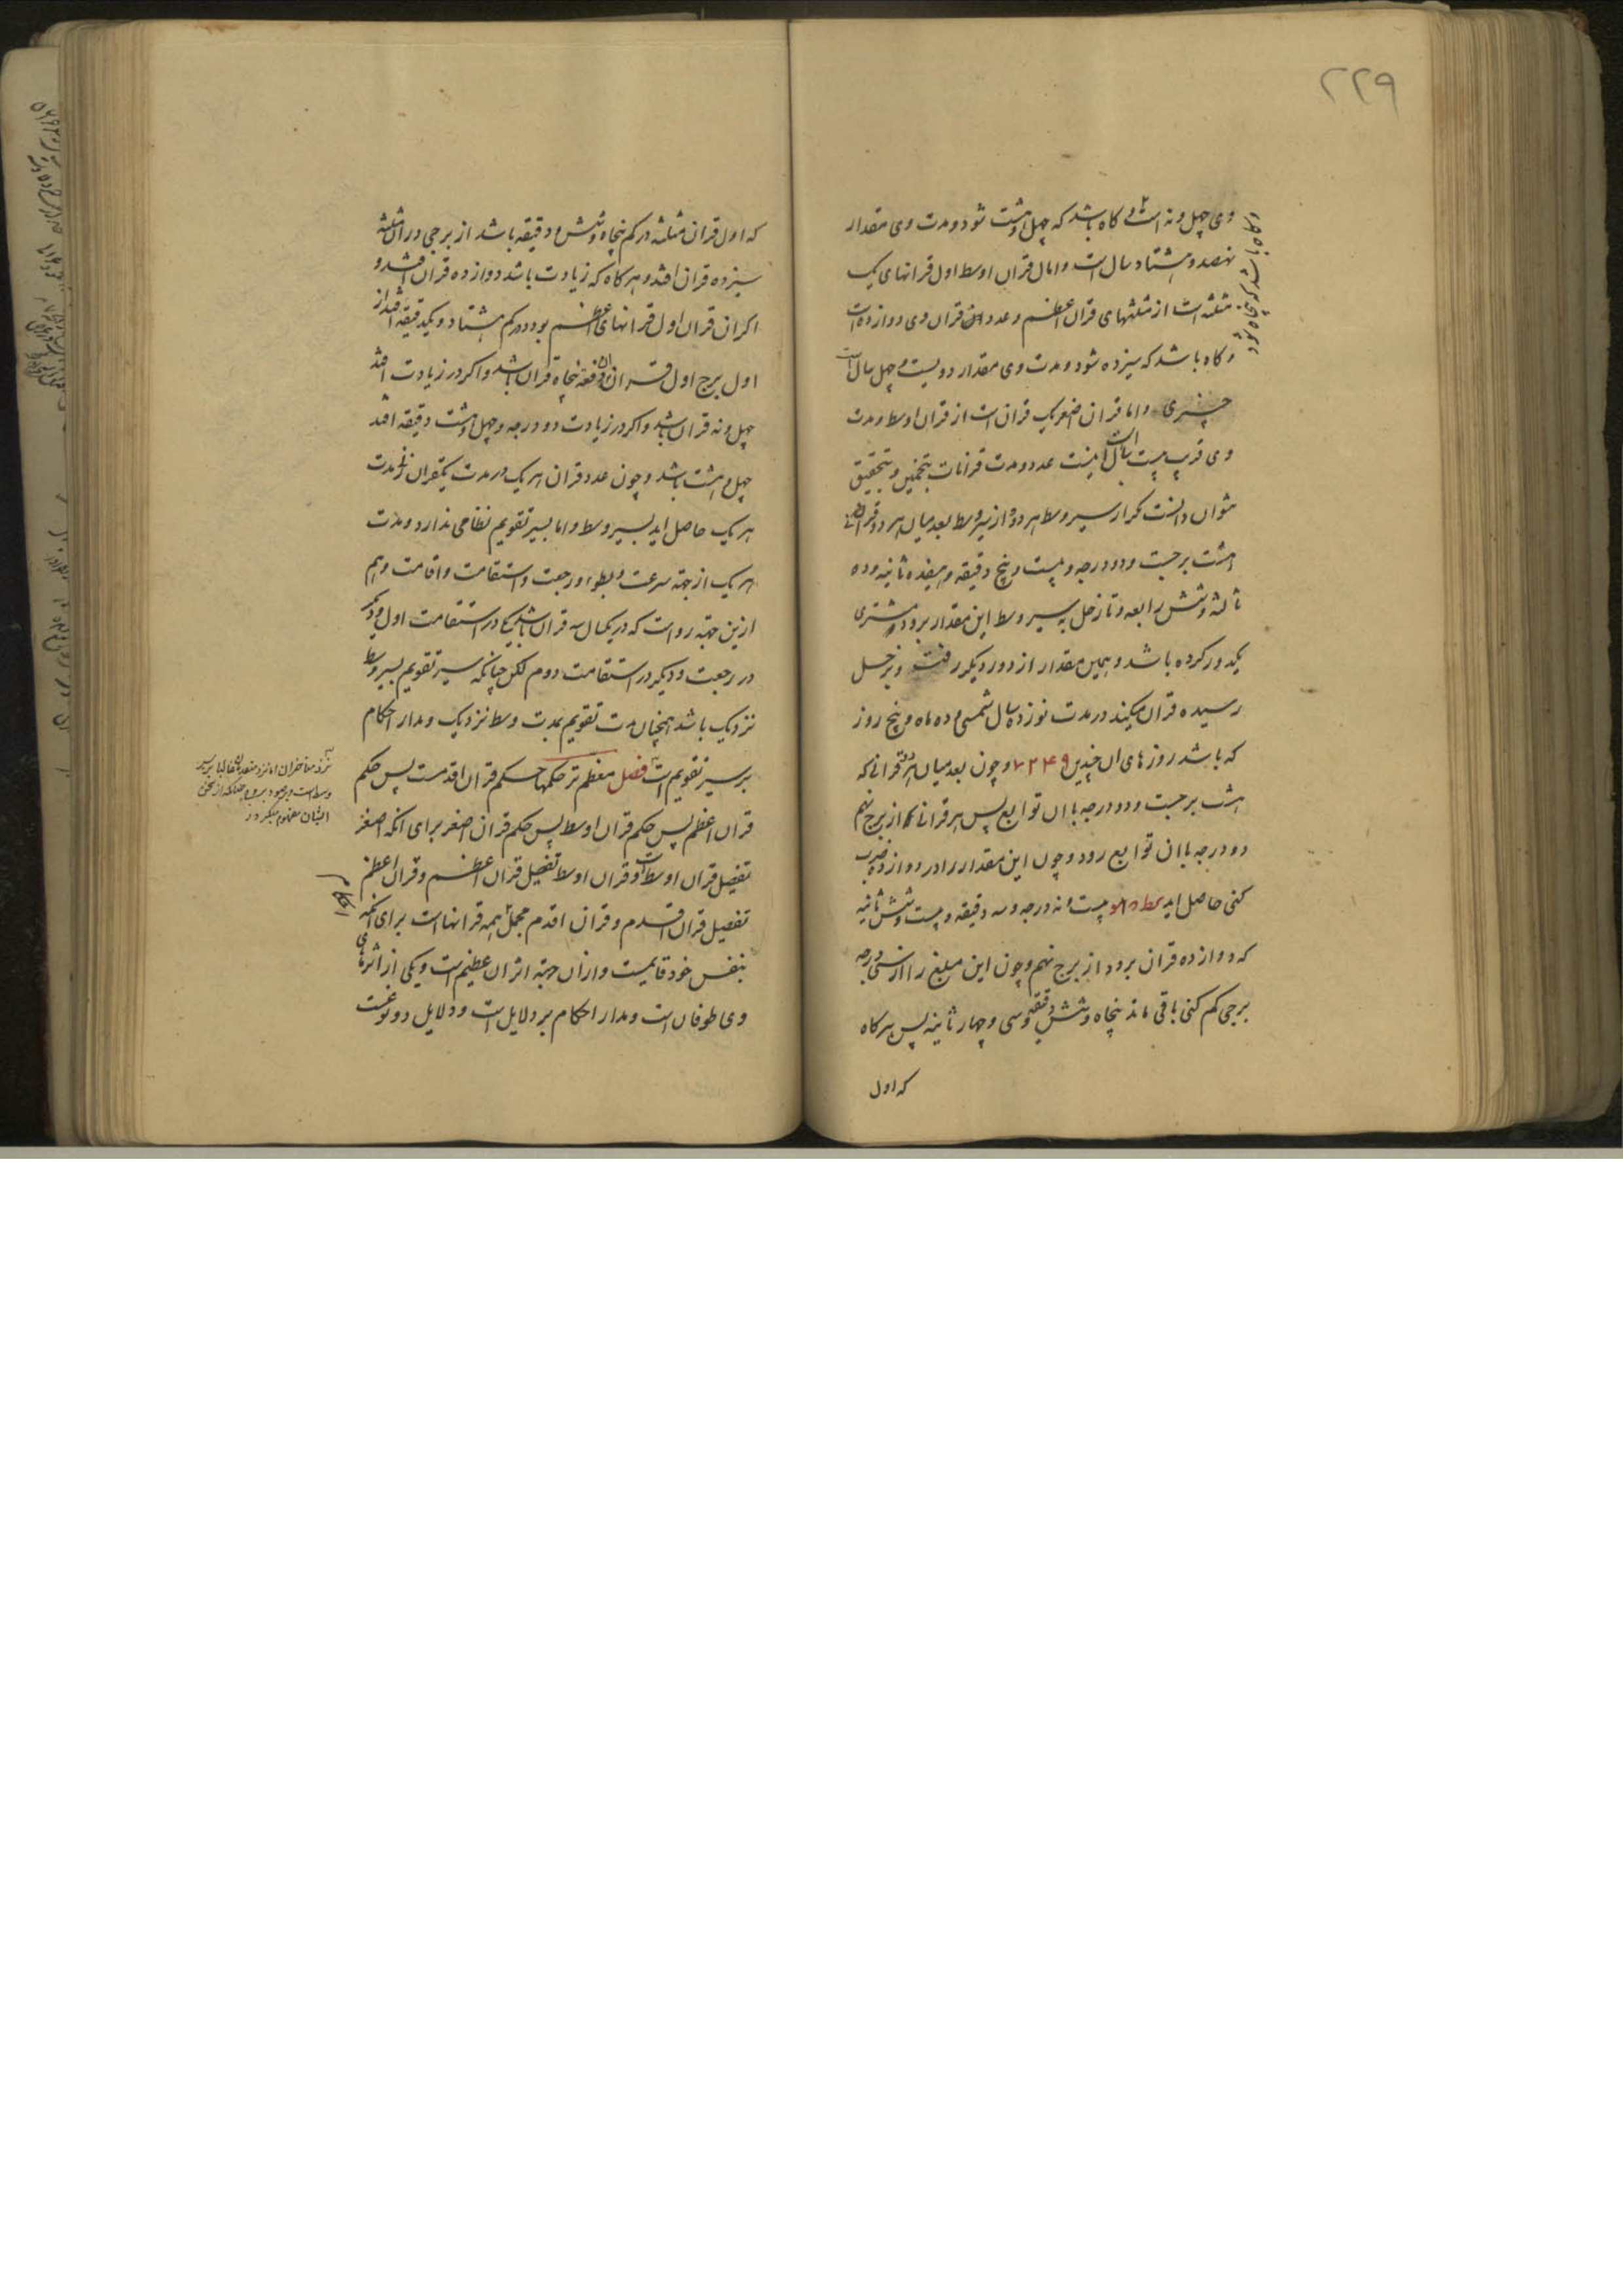 ۲۲۹
وی چهل و نه است و گاه باشد که چهل و هشت شود و مدت وی مقدار
نهصد و هشتاد سال است و اما قران اوسط اول قرانهای یک
مثلثه است از مثلثهای قران اعظم و عدد قران وی دوازده است
و گاه باشد که سیزده شود و مدت وی مقدار دویست و چهل سال است
چیزی و اما قران اصغر یک قران است از قران اوسط و مدت
وی قریب بیست سال است اینست عدد و مدت قرانات بتخمین و بتحقیق
نتوان دانست مگر از سیر وسط هر دو و از سیر وسط بعد میان هر دو قرانی
هشت برجست و دو درجه و بیست و پنج دقیقه و هفده ثانیه و ده
ثالثه و شش رابعه و تا زحل به سیر وسط این مقدار برود و مشتری
یکدور کرده باشد و همین مقدار از دور دیگر رفته و بزحل
رسیده قران میکند در مدت نوزده سال شمسی و ده ماه و پنج روز
که باشد روزهای ان چندین ۷۲۴۹ و چون بعد میان هر دو قرانی که
هشت برجست و دو درجه با ان توابع پس هر قرانی از برج نهم
دو درجه با ان توابع رود و چون این مقدار را در دوازده ضرب
کنی حاصل اید بیست و نه درجه و سه دقیقه و بیست و شش ثانیه
که دوازده قران برود از برج نهم و چون این مبلغ را از سی درجه
برجی کم کنی باقی ماند پنجاه و شش دقیقه و سی و چهار ثانیه پس هرگاه
که اول
و گاه باشد که پنجاه شود
که اول قران مثلثه در کم پنجاه و شش دقیقه باشد از برجی در ان مثلثه
سیزده قران افتد و هرگاه که زیادت باشد دوازده قران افتد و
اگر ان قران اول قرانهای اعظم بود در کم هشتاد و یکدقیقه افتد از
اول برج اول قران ان دفعه پنجاه قران باشد و اگر در زیادت افتد
چهل و نه قران باشد و اگر در زیادت دو درجه و چهل و هشت دقیقه افتد
چهل و هشت باشد و چون عدد قران هر یک در مدت یکقران زنی مدت
هر یک حاصل اید بسیر وسط و اما بسیر تقویم نظامی ندارد و مدت
هر یک از جهته سرعت و بطوء و رجعت و استقامت و اقامت و هم
ازین جهته رواست که در یکسال سه قران باشد یکی در استقامت اول و دیگر
در رجعت و دیگر در استقامت دوم لکن چنانکه سیر تقویم بسیر وسط
نزدیک باشد همچنان مدت تقویم بمدت وسط نزدیک و مدار احکام
بر سیر تقویم است فصل معظم تر حکمها حکم قران اقدمست پس حکم
قران اعظم پس حکم قران اوسط پس حکم قران اصغر برای انکه اصغر
تفصیل قران اوسط است و قران اوسط تفصیل قران اعظم و قران اعظم
تفصیل قران اقدم و قران اقدم مجمل همه قرانهاست برای انکه
بنفس خود قایمست و ازان جهته اثر ان عظیم است و یکی از اثرهای
وی طوفان است و مدار احکام بر دلایل است و دلایل دو نوعست
نزد متاخران اما نزد متقدمان غالبا بر سیر
وسط است
ایشان مفهوم میگردد